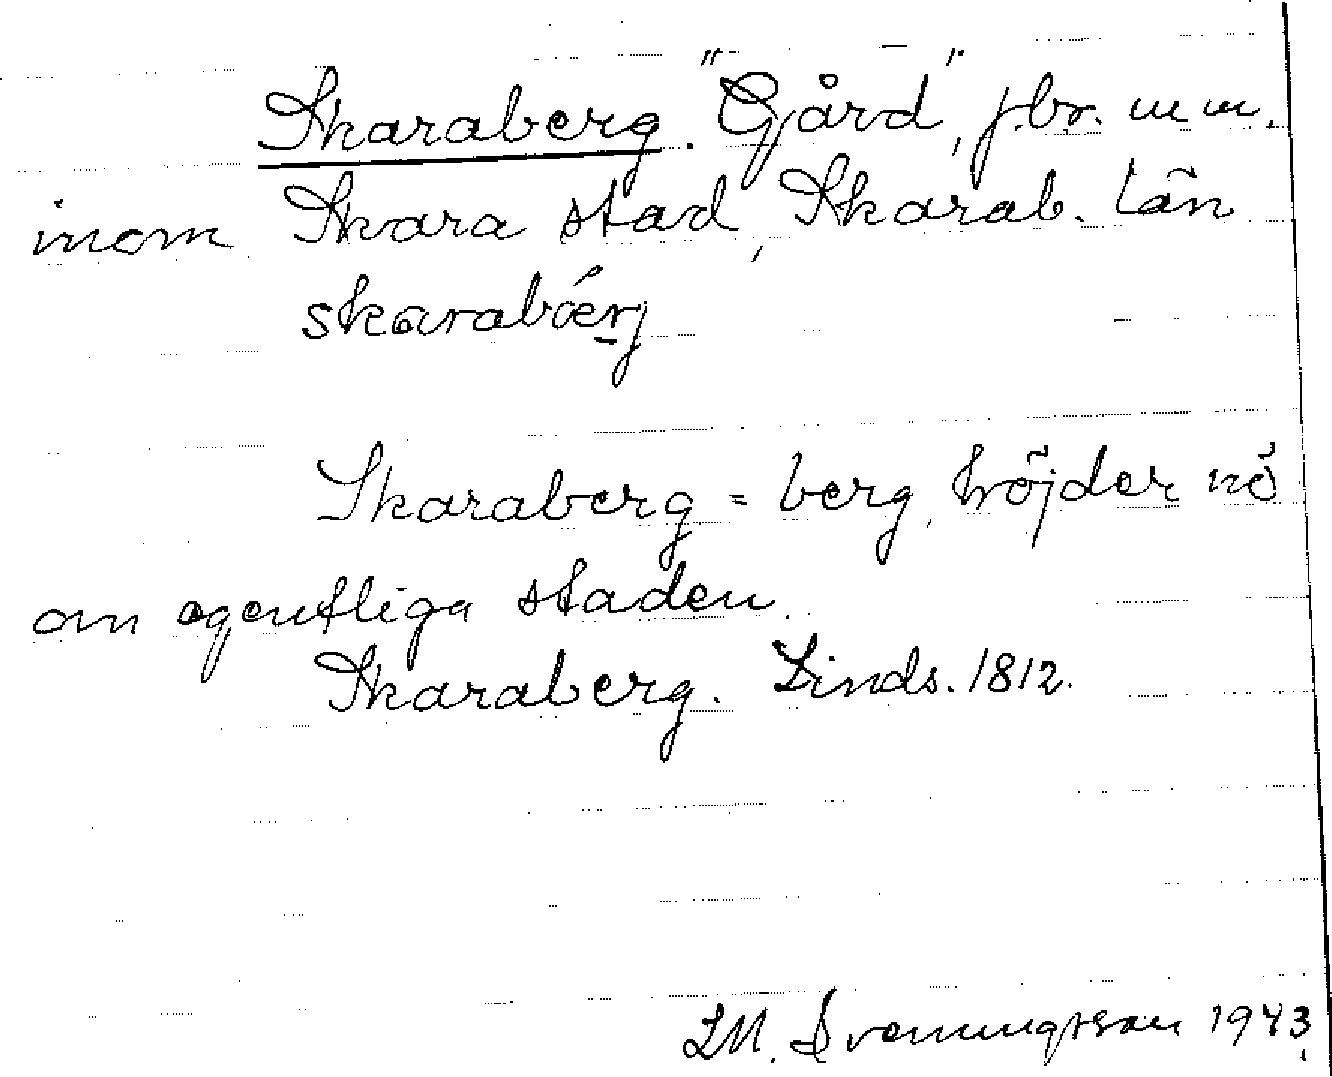 Skaraberg. "Gård", jbr. m m.
inom Skara stad, Skarab. län
skarabǽrj
Skaraberg = berg, höjder nö
om egentliga staden.
Skaraberg. Linds. 1812.
LM. Svenungsson 1943